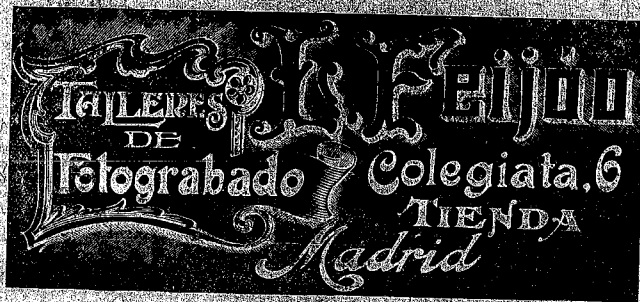 TALLERES
DE
Fotograbado
Feijóo
Colegiata, 6
TIENDA
Madrid